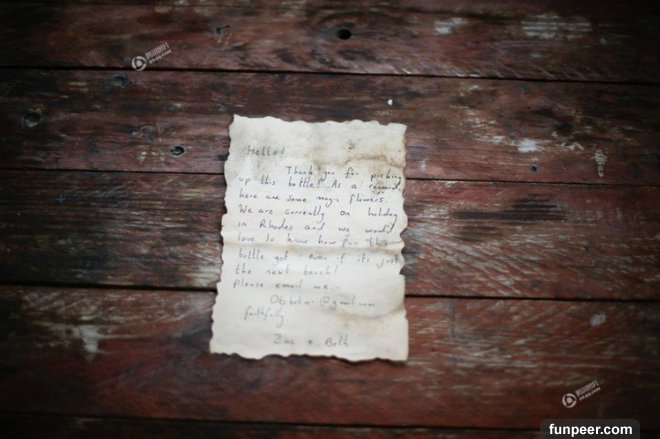 Hello!
Thank you for picking
up this bottle! As a reward
here are some magic flowers.
We are currently on holiday
in Rhodes and we would
love to know how far this
bottle got - even if its just
the next beach!
please email me:-
@gmail.com
faithfully
Zoe & Beth
funpeer.com